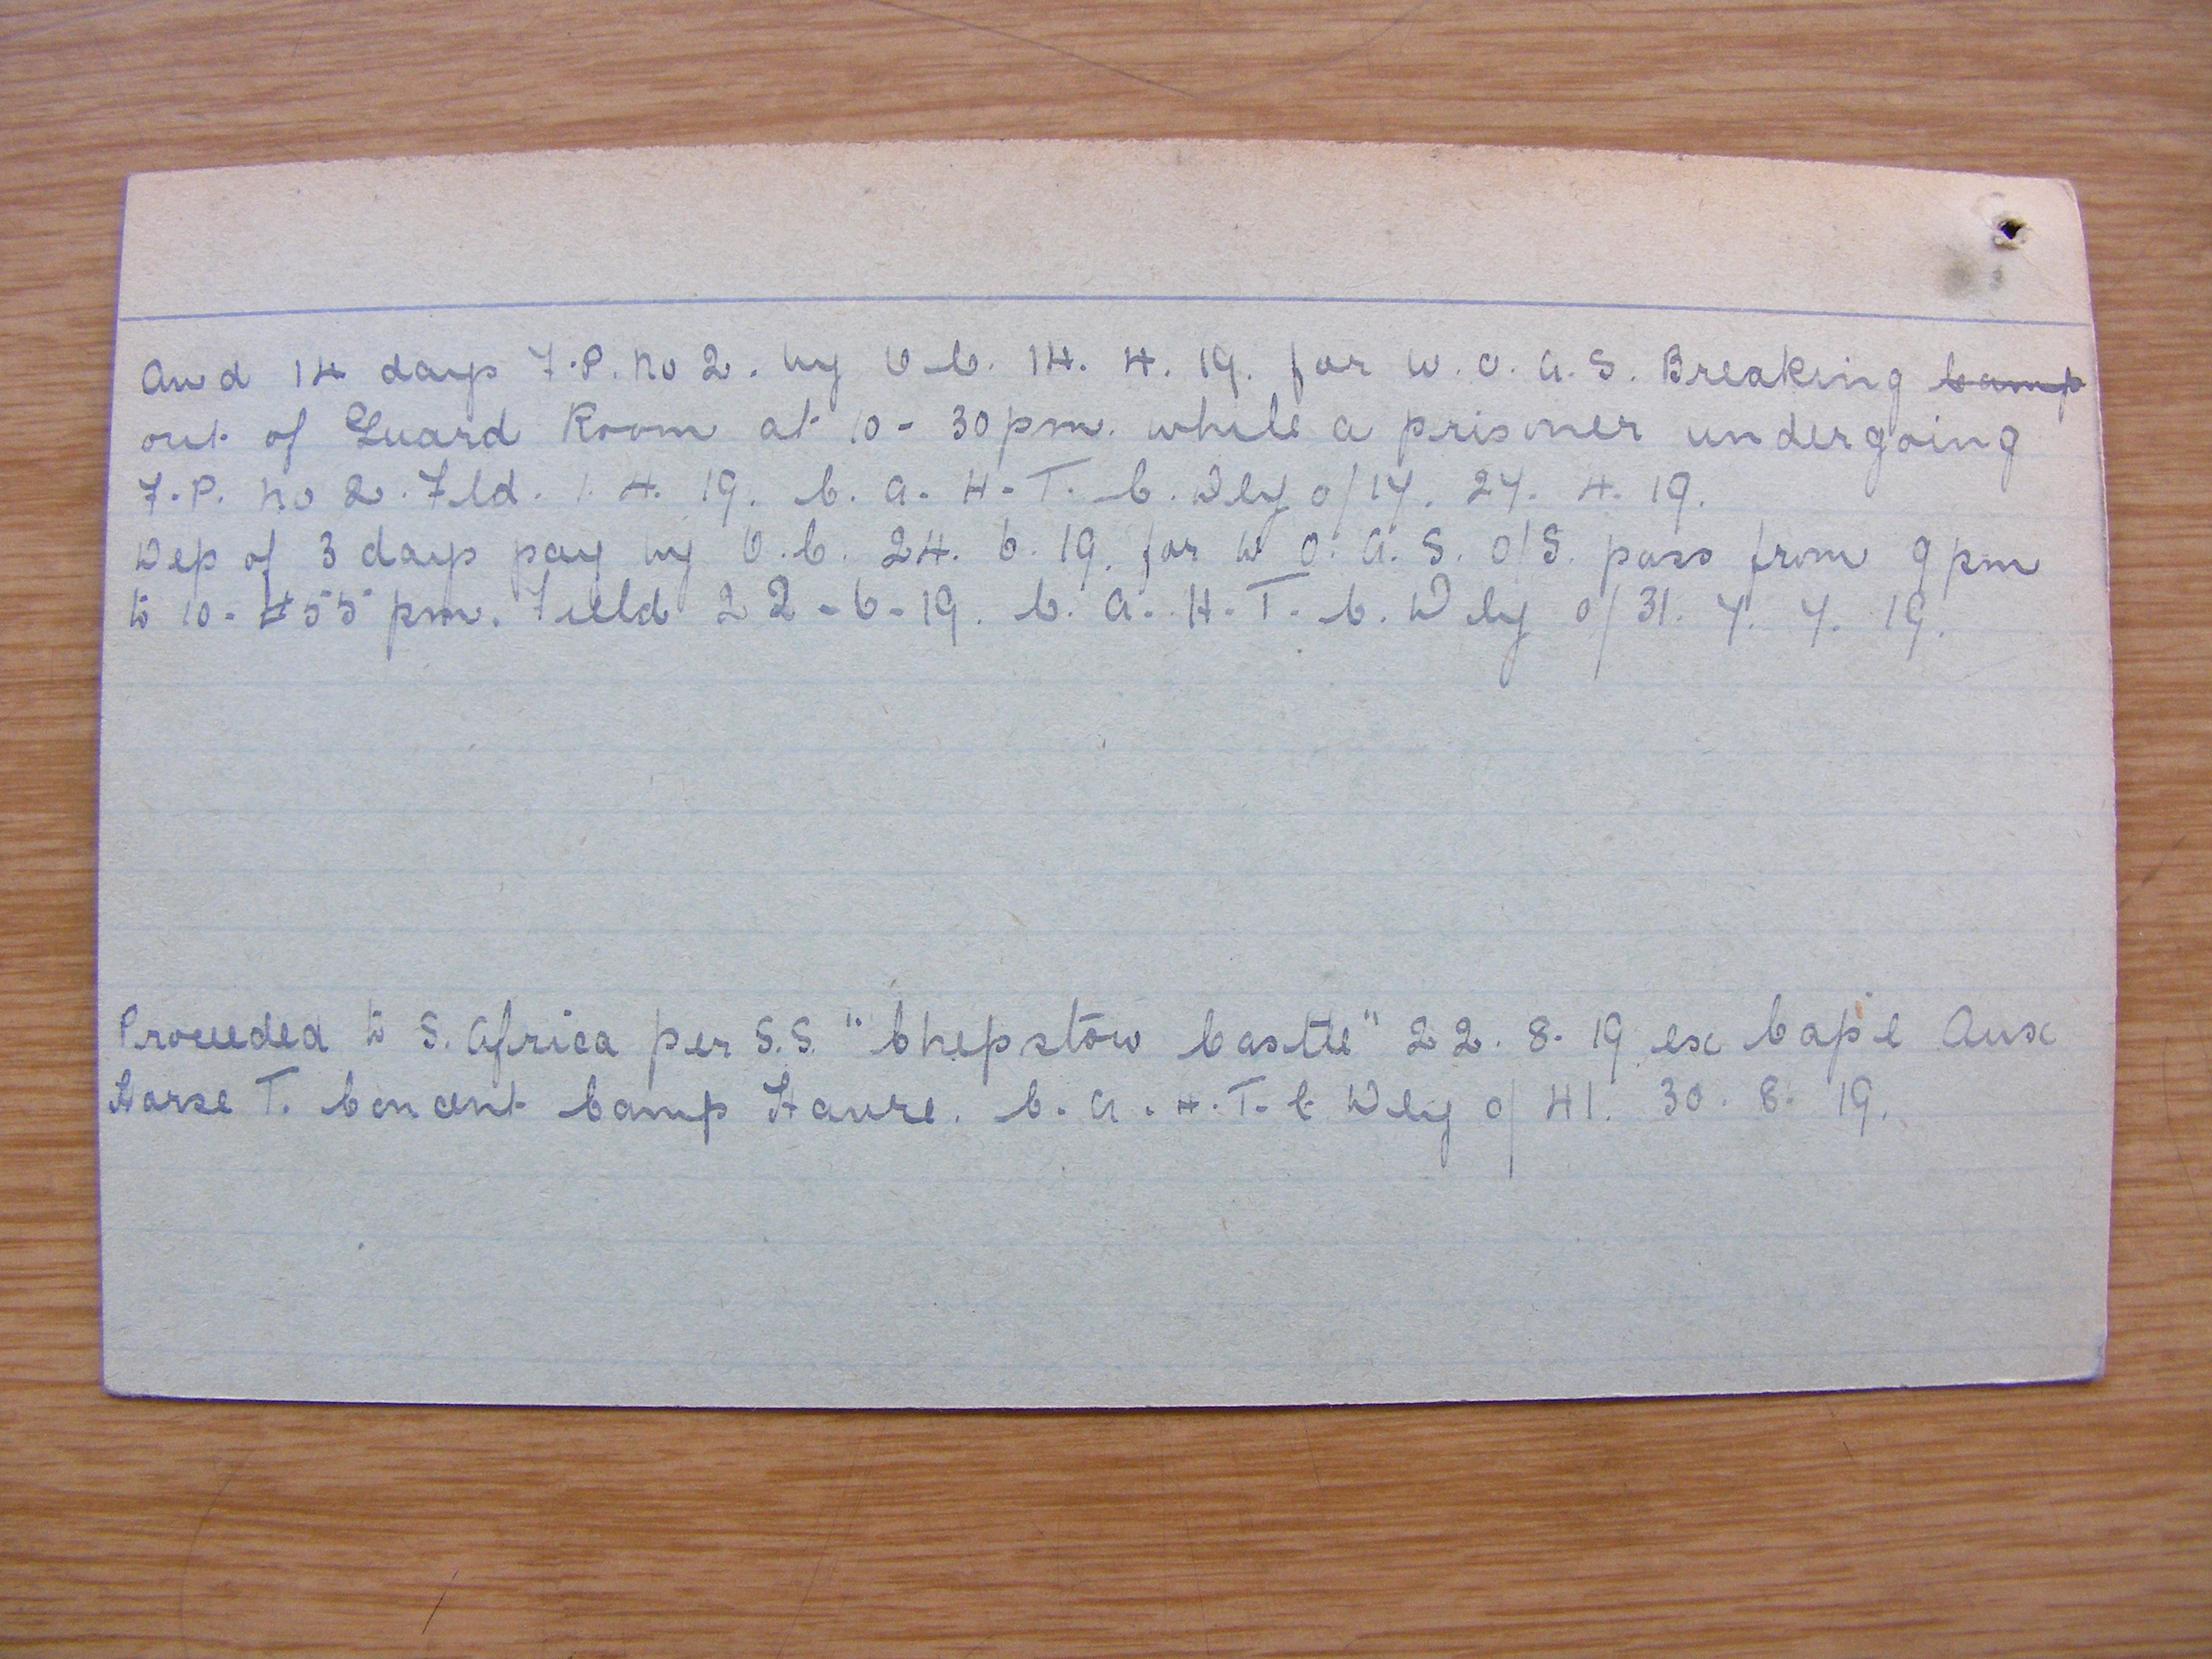 Awd 14 days F.P. No 2. by O.C. 14. 4. 19. for W.O.A.S. Breaking Camp
out of Guard Room at 10-30 pm. while a prisoner undergoing
F.P. No 2. Fld. 1. 4. 19. C.A.H.T.C. Dly o/17. 27. 4. 19.
Dep of 3 days pay by O.C. 24. 6. 19. for W.O.A.S. O/S. pass from 9 pm
to 10-55 pm. Field 22-6-19. C.A.H.T.C. Dly o/31. 7. 7. 19.
Proceeded to S. Africa per S.S. "Chepstow Castle" 22. 8. 19 ex Cape Aux
Horse T. Concent Camp Havre. C.A.H.T.C Dly o/41. 30. 8. 19.